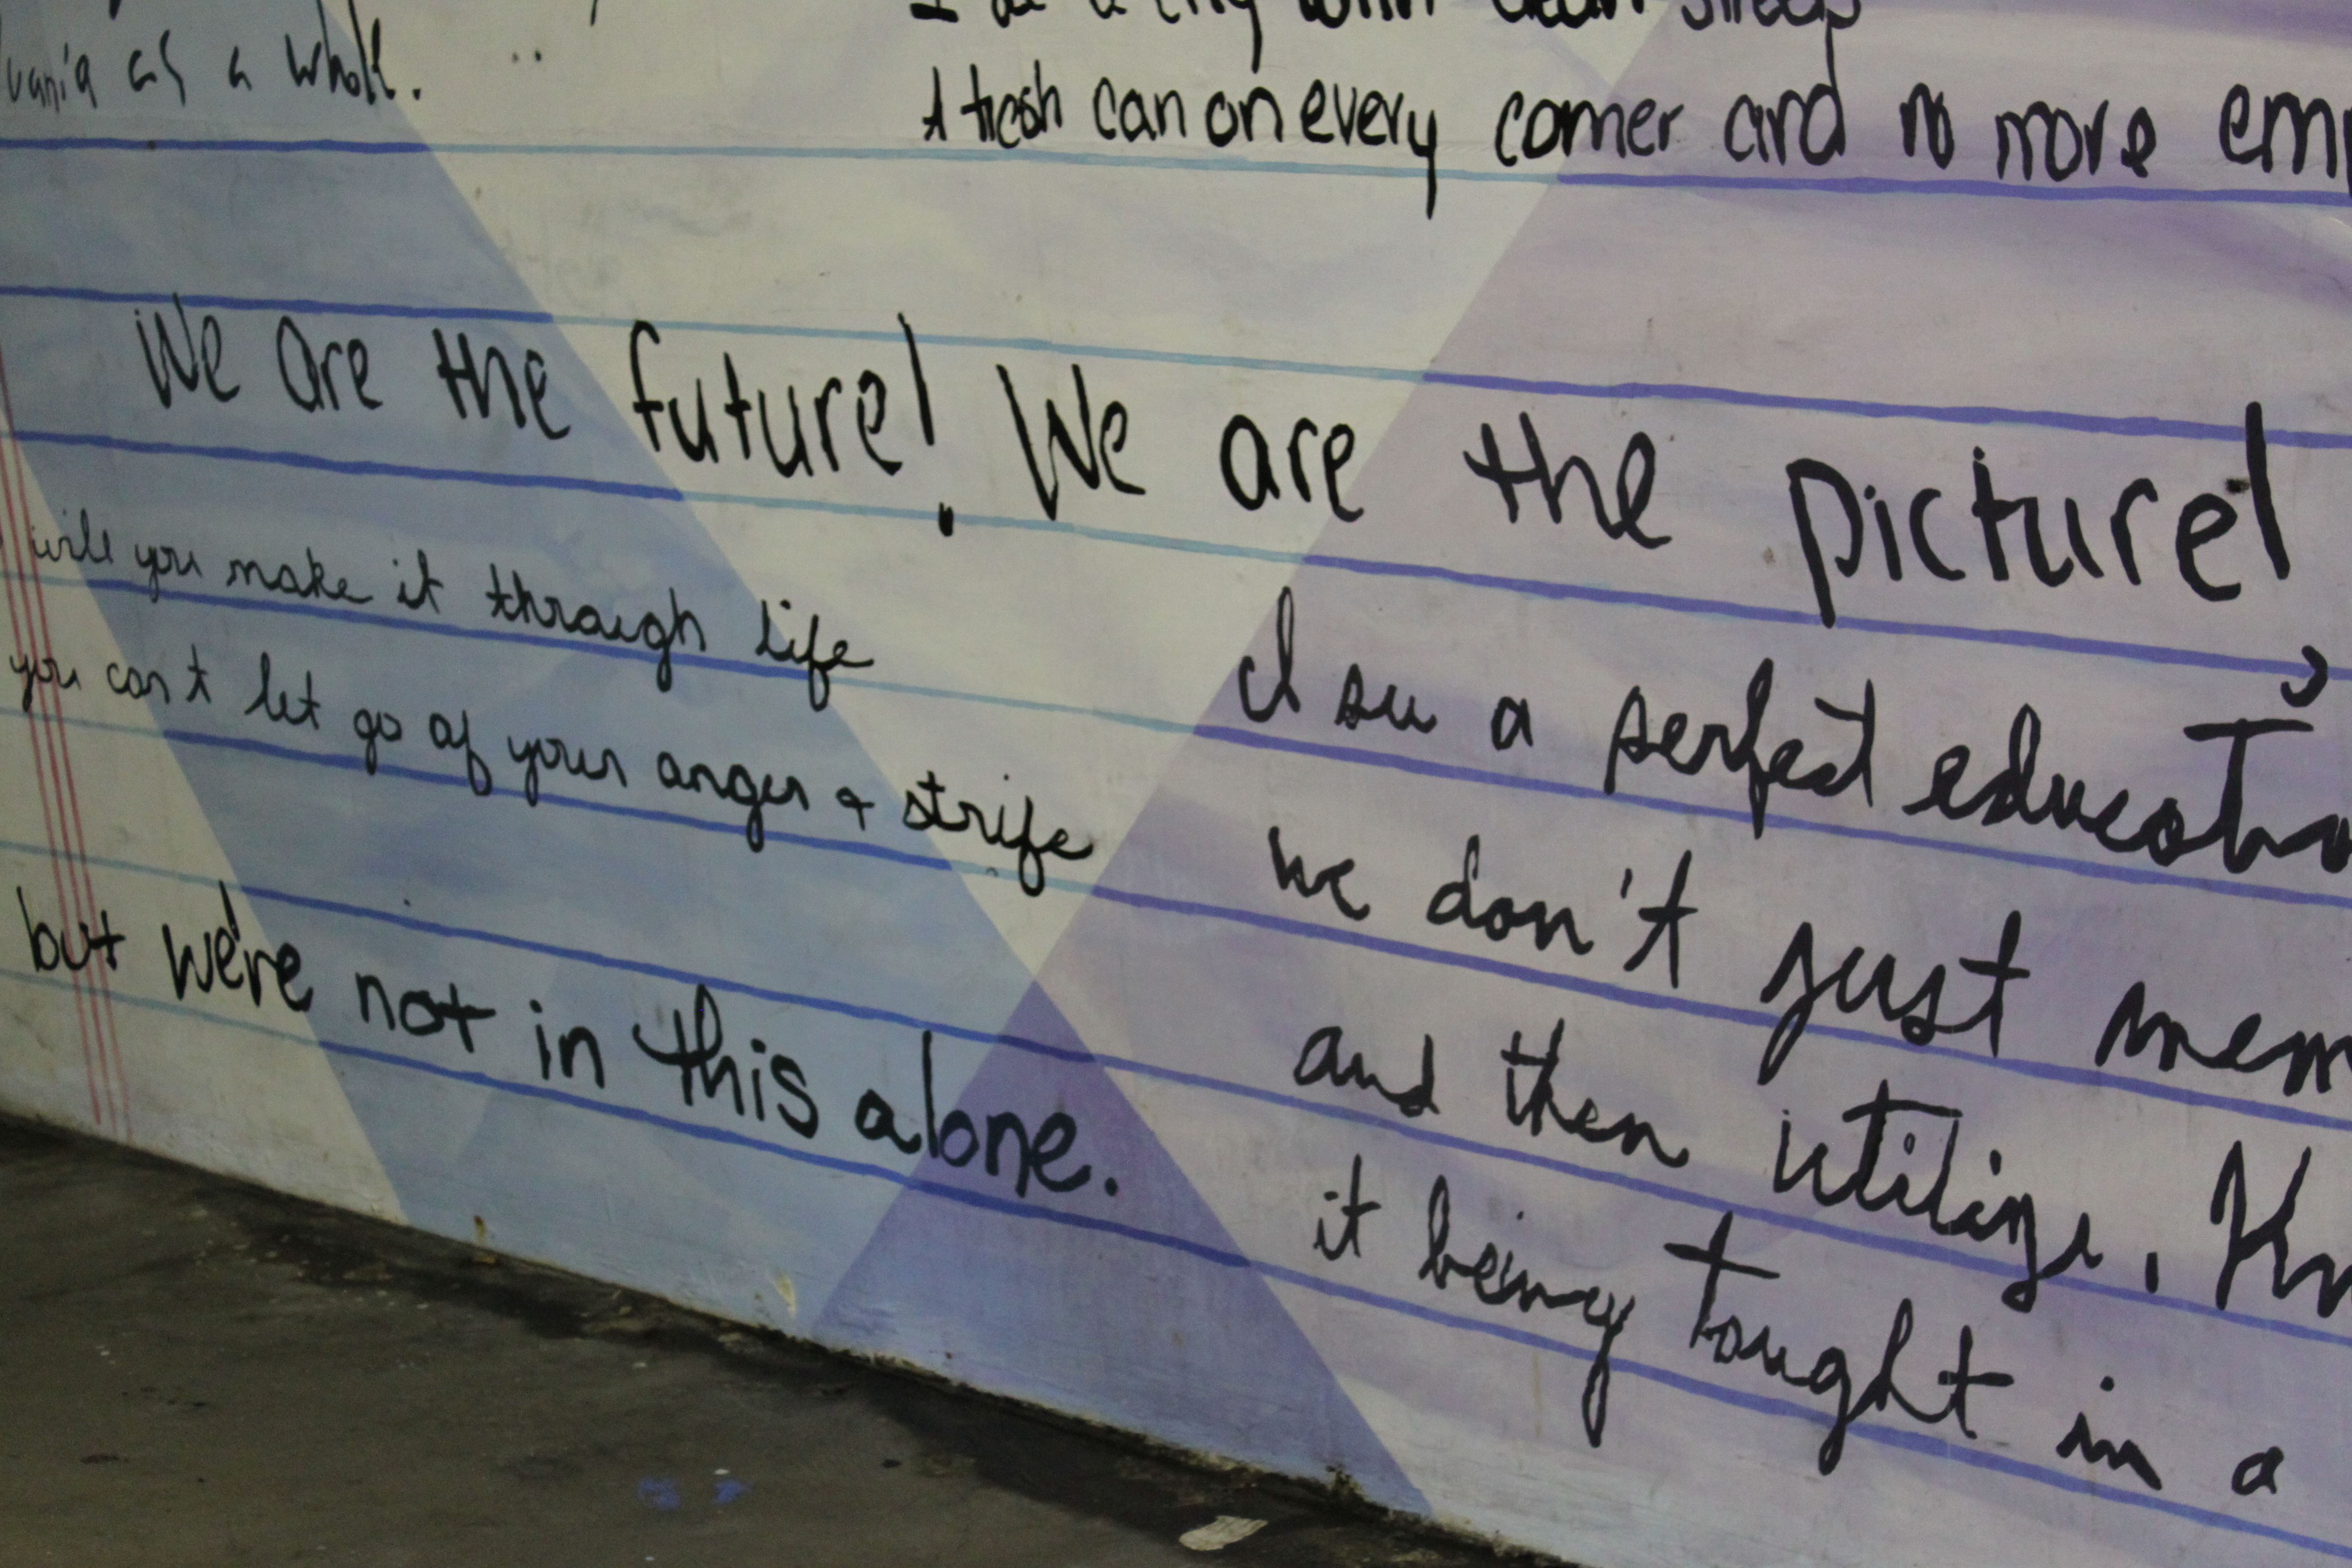 as a whole.
a city with clean streets
A trash can on every corner and no more
We are the future! We are the picture!
will you make it through life
you can't let go of your anger & strife
but we're not in this alone.
I see a perfect
we don't just
and then utilize.
it being taught in a